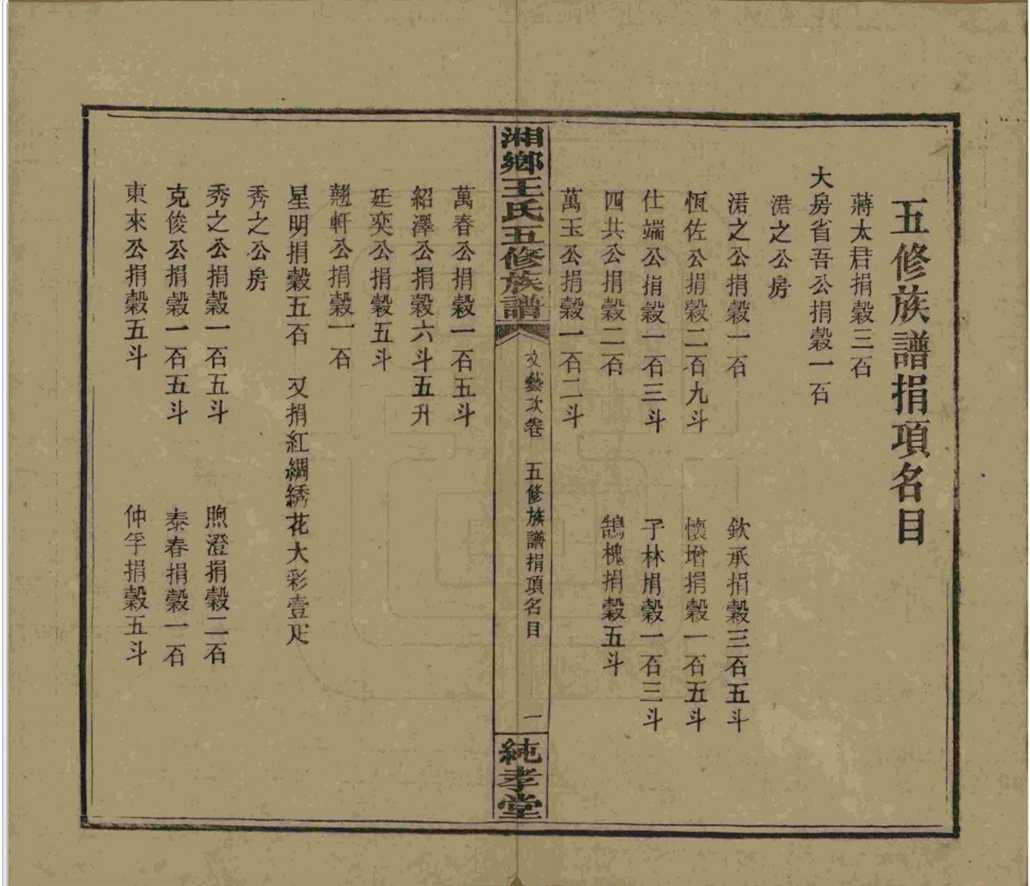 五修族譜捐項名目
蔣太君捐穀三石
大房省吾公捐穀一石
渚之公房
渚之公捐穀一石　欽承捐穀三石五斗
恆佐公捐穀二石九斗　懷增捐穀一石五斗
仕端公捐穀一石三斗　子林捐穀一石三斗
四共公捐穀二石　鵠槐捐穀五斗
萬玉公捐穀一石二斗
湘鄉王氏五修族譜　文藝次卷　五修族譜捐項名目　一　純孝堂
萬春公捐穀一石五斗
紹澤公捐穀六斗五升
廷奕公捐穀五斗
翹軒公捐穀一石
星明捐穀五石　又捐紅綢綉花大彩壹疋
秀之公房
秀之公捐穀一石五斗　煦澄捐穀二石
克俊公捐穀一石五斗　泰春捐穀一石
東來公捐穀五斗　仲孚捐穀五斗